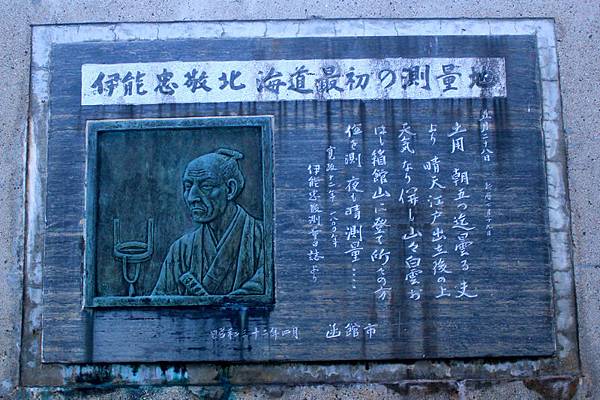 伊能忠敬北海道最初の測量地
五月二十八日
土用 朝五つ迄曇る 夫
より晴天江戸出立後の上
天気なり併し山々白雲お
ほし箱館山に登て所々の方
位を測 夜も晴測量……
寛政十二年 一八〇〇年
伊能忠敬測量日誌より
昭和三十二年四月 函館市